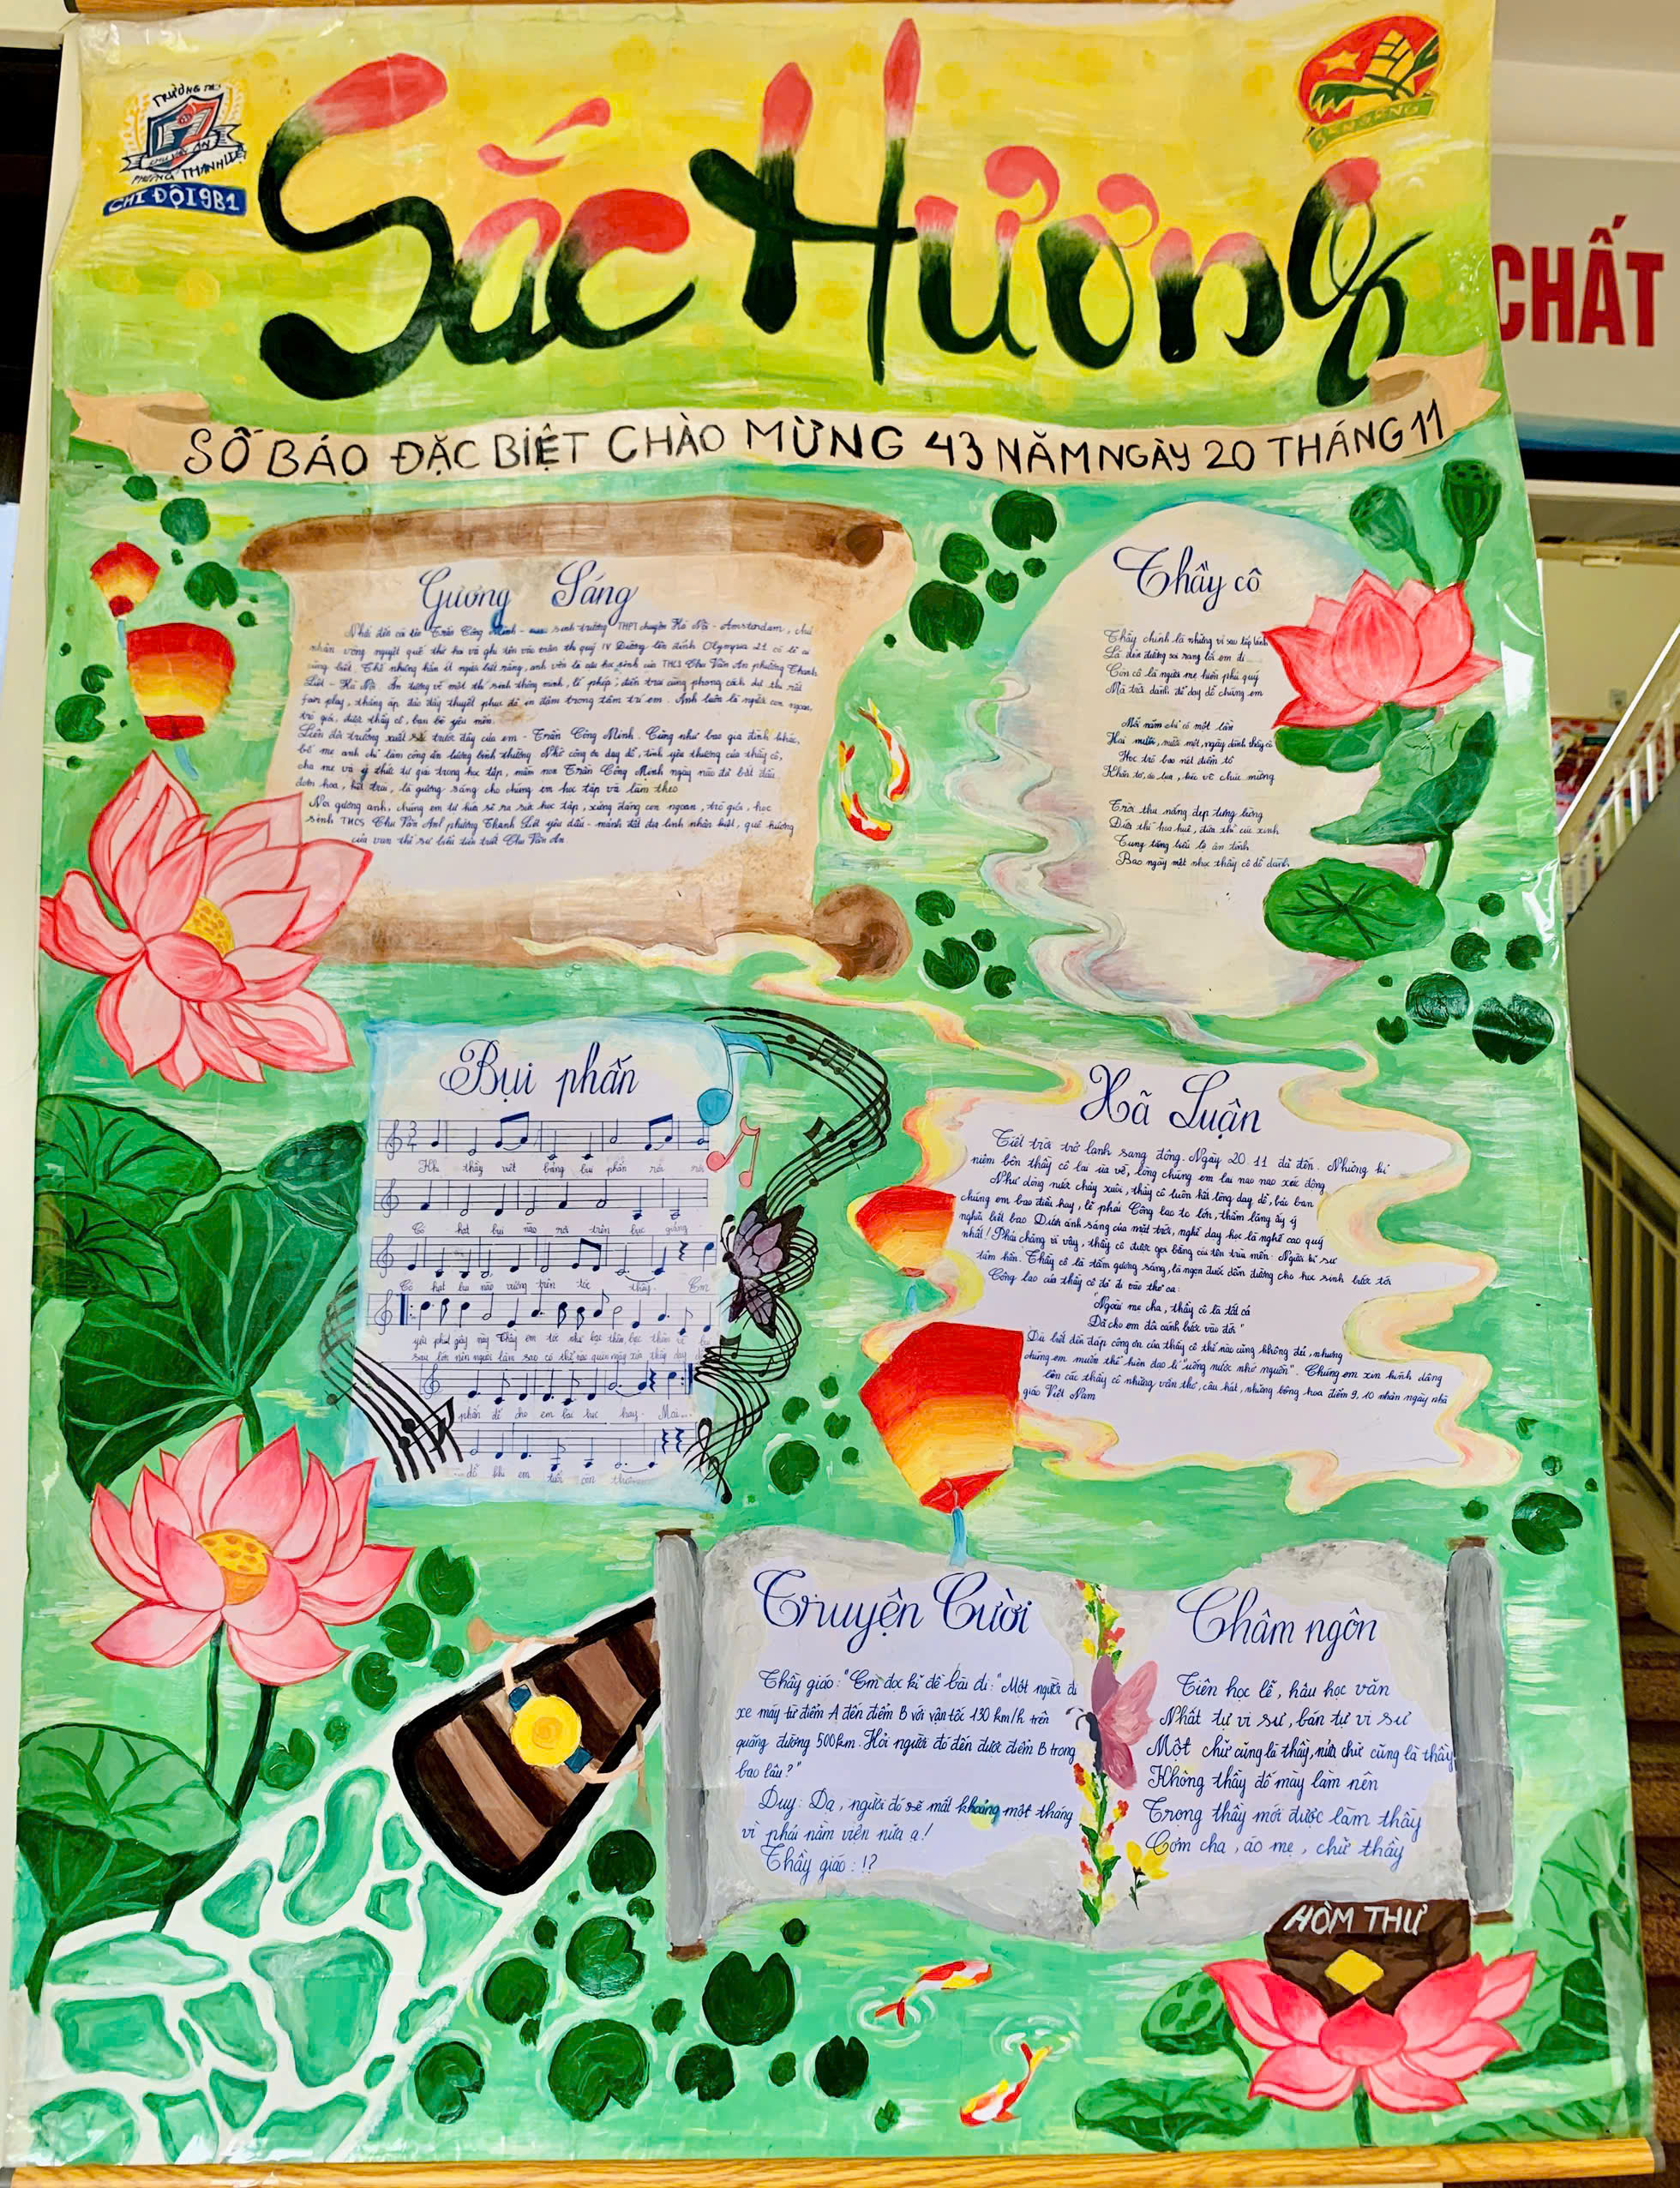 TRƯỜNG THCS
CHU VĂN AN
PHƯỜNG THANH LIỆT
CHI ĐỘI 9B1
Sắc Hương
CHẤT
SỐ BÁO ĐẶC BIỆT CHÀO MỪNG 43 NĂM NGÀY 20 THÁNG 11
Gương Sáng
Nhắc đến cái tên Trần Công Minh - sinh trường THPT chuyên Hà Nội - Amsterdam, chủ
nhân vòng nguyệt quế thứ ba và ghi tên vào trận thi quý IV Đường lên đỉnh Olympia 21 có lẽ ai
cũng biết. Thế nhưng hẳn ít người biết rằng, anh vốn là cậu học sinh của THCS Chu Văn An phường Thanh
Liệt - Hà Nội. Ấn tượng về một thí sinh thông minh, lễ phép, điển trai cùng phong cách dự thi rất
fair play, thắng áp đảo đầy thuyết phục đã in đậm trong tâm trí em. Anh luôn là người con ngoan,
trò giỏi, được thầy cô, bạn bè yêu mến.
Liên đội trưởng xuất sắc trước đây của em - Trần Công Minh. Cũng như bao gia đình khác,
bố mẹ anh chỉ làm công ăn lương bình thường. Nhờ công ơn dạy dỗ, tình yêu thương của thầy cô,
cha mẹ và ý thức tự giác trong học tập, mầm non Trần Công Minh ngày nào đã bắt đầu
đơm hoa, kết trái, là gương sáng cho chúng em học tập và làm theo
Noi gương anh, chúng em tự hứa sẽ ra sức học tập, xứng đáng con ngoan, trò giỏi, học
sinh THCS Chu Văn An phường Thanh Liệt yêu dấu - mảnh đất địa linh nhân kiệt, quê hương
của vạn thế sư biểu tiên triết Chu Văn An
Thầy cô
Thầy chính là những vì sao lấp lánh
Là đèn đường soi sáng lối em đi
Còn cô là người mẹ hiền phú quý
Mà trời dành để dạy dỗ chúng em
Mỗi năm chỉ có một lần
Hai mươi, mười một, ngày dành thầy cô
Học trò bao nét điểm tô
chúc mừng
Trời thu nắng đẹp tưng bừng
Đứa thì hoa huệ, đứa thì cúc xinh
Tung tăng biếu lọ ân tình
Bao ngày mệt nhọc thầy cô dỗ dành
Bụi phấn
Khi thầy viết bảng bụi phấn rơi rơi
Có hạt bụi nào rơi trên bục giảng
Có hạt bụi nào vương trên tóc thầy. Em
yêu phút giây này Thầy em tóc như bạc thêm bạc thêm vì bụi
sau lớn nên người làm sao có thể nào quên ngày xưa thầy dạy
phấn để cho em bài học hay. Mai...
...dỗ khi em tuổi còn thơ...
Xã Luận
Tiết trời trở lạnh sang đông. Ngày 20 11 đã đến. Những kỉ
niệm bên thầy cô lại ùa về, lòng chúng em lại nao nao xúc động
Như dòng nước chảy xuôi, thầy cô luôn hết lòng dạy dỗ, bảo ban
chúng em bao điều hay, lẽ phải Công lao to lớn, thầm lặng ấy ý
nghĩa biết bao Dưới ánh sáng của mặt trời, nghề dạy học là nghề cao quý
nhất! Phải chăng vì vậy, thầy cô được gọi bằng cái tên trìu mến: Người kĩ sư
tâm hồn. Thầy cô là tấm gương sáng, là ngọn đuốc dẫn đường cho học sinh bước tới
Công lao của thầy cô đã đi vào thơ ca:
"Ngoài mẹ cha, thầy cô là tất cả
Đã cho em đôi cánh bước vào đời"
Dù biết đền đáp công ơn của thầy cô thế nào cũng không đủ, nhưng
chúng em muốn thể hiện đạo lí "uống nước nhớ nguồn". Chúng em xin kính dâng
lên các thầy cô những vần thơ, câu hát, những bông hoa điểm 9, 10 nhân ngày nhà
giáo Việt Nam
Truyện Cười
Thầy giáo: "Em đọc kĩ đề bài đi: "Một người đi
xe máy từ điểm A đến điểm B với vận tốc 130 km/h trên
quãng đường 500km. Hỏi người đó đến được điểm B trong
bao lâu?"
Duy: Dạ, người đó sẽ mất khoảng một tháng
vì phải nằm viện nữa ạ!
Thầy giáo: !?
Châm ngôn
Tiên học lễ, hậu học văn
Nhất tự vi sư, bán tự vi sư
Một chữ cũng là thầy, nửa chữ cũng là thầy
Không thầy đố mày làm nên
Trọng thầy mới được làm thầy
Cơm cha, áo mẹ, chữ thầy
HÒM THƯ